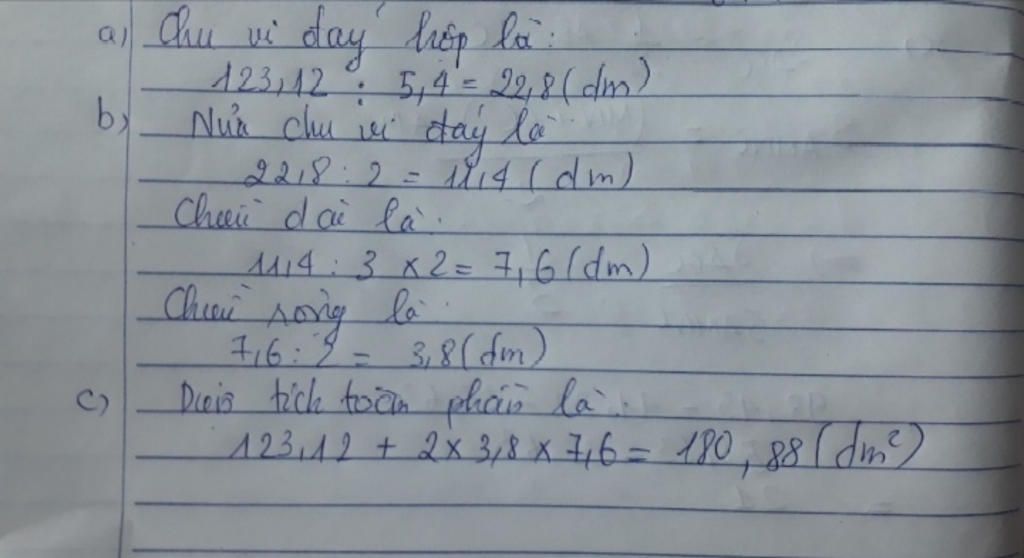 a) Chu vi đáy hộp là:
123,12 : 5,4 = 22,8 (dm)
b) Nửa chu vi đáy là
22,8 : 2 = 11,4 (dm)
Chiều dài là:
11,4 : 3 x 2 = 7,6 (dm)
Chiều rộng là:
7,6 : 2 = 3,8 (dm)
c) Diện tích toàn phần là:
123,12 + 2 x 3,8 x 7,6 = 180,88 (dm²)